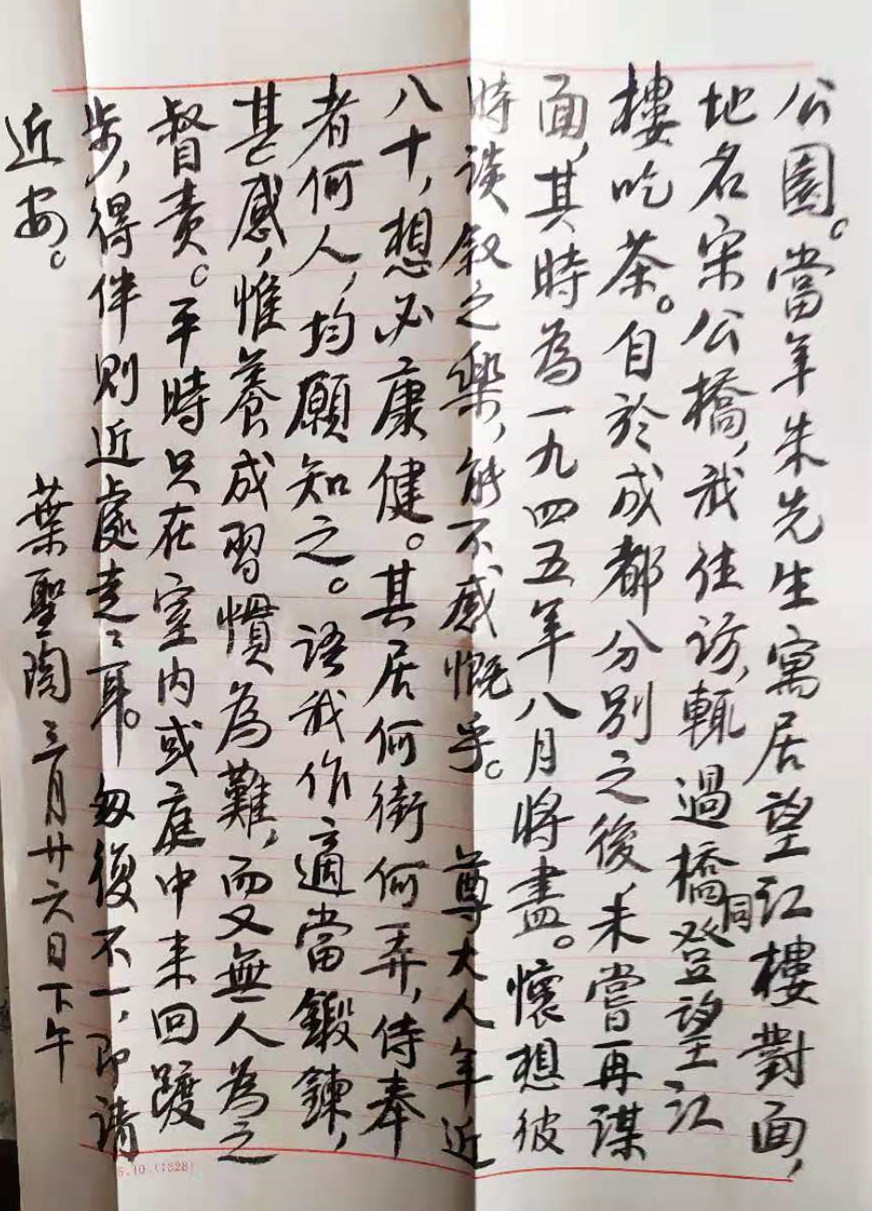 公園。當年朱先生寓居望江樓對面，
地名宋公橋，我往訪，輒過橋同登望江
樓吃茶。自於成都分别之後，未嘗再謀
面，其時為一九四五年八月將盡。懷想彼
時談叙之樂，能不感慨乎。 尊大人年近
八十，想必康健。其居何街何弄，侍奉
者何人，均願知之。语我作適當鍛鍊，
甚感，惟養成習慣為難，而又無人為之
督责。平時只在室内或庭中来回踱
步，得伴则近處走走耳。匆復不一，即請
近安。
葉聖陶 三月廿六日下午